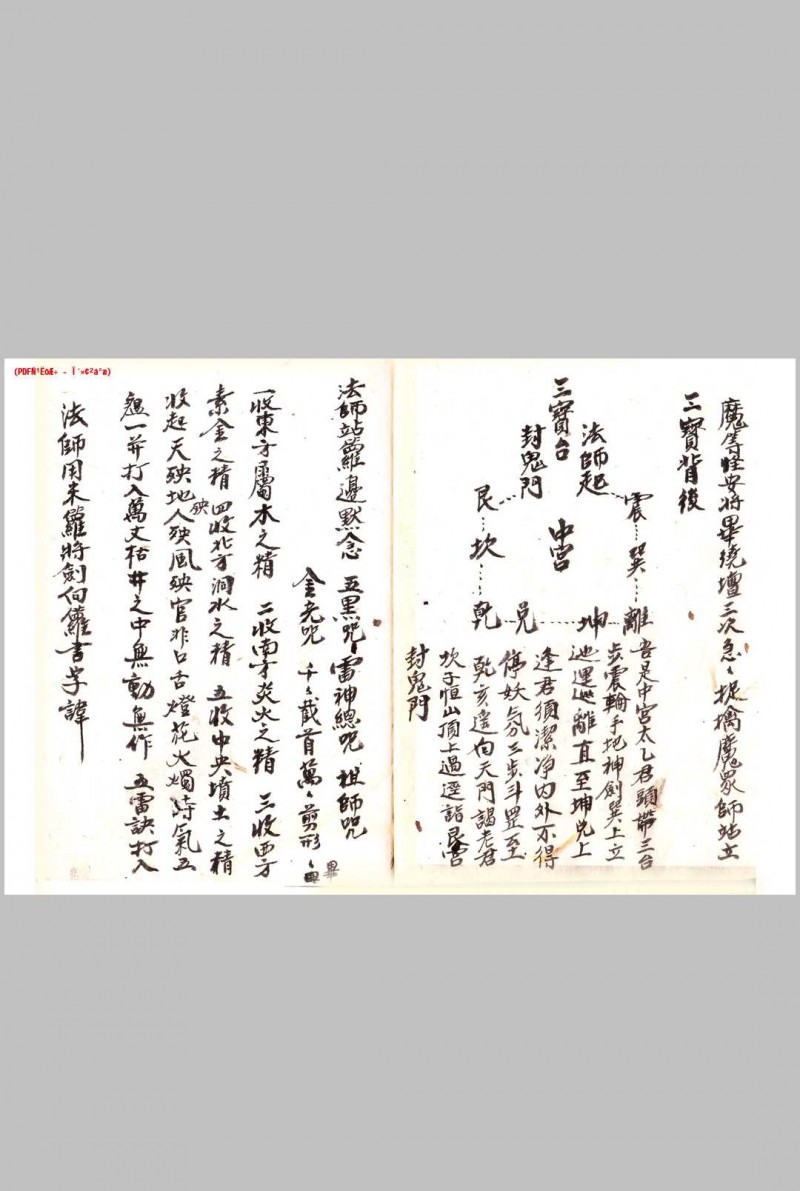 (PDFÑ¹ËõÆ÷ - Î´×¢²á°æ)
魔等怪安將畢繞壇三次急〻捉擒魔眾師站立
三寶背後
三寶台
法師起
封鬼門
震
巽
離
坤
兌
乾
坎
艮
中宮
吾是中宮太乙君頭帶三台
步震輪手把神劍巽上立
迤運迆離直至坤兌上
逢君須潔净內外不得
停妖氛三步斗罡至
乾亥遥向天門謁老君
坎子恒山頂上過逕詣艮宮
封鬼門
法師站籮邊默念 五黑咒 雷神總咒 祖師咒
金老咒 千〻截首萬〻剪形〻 畢
一收東方屬木之精 二收南方炎火之精 三收西方
素金之精 四收北方澗水之精 五收中央墳土之精
收起天殃地殃人殃風殃官非口舌燈花火燭時氣五
瘟一并打入萬丈枯井之中無動無作 五雷訣打入
法師用朱籮將劍向籮書字諱